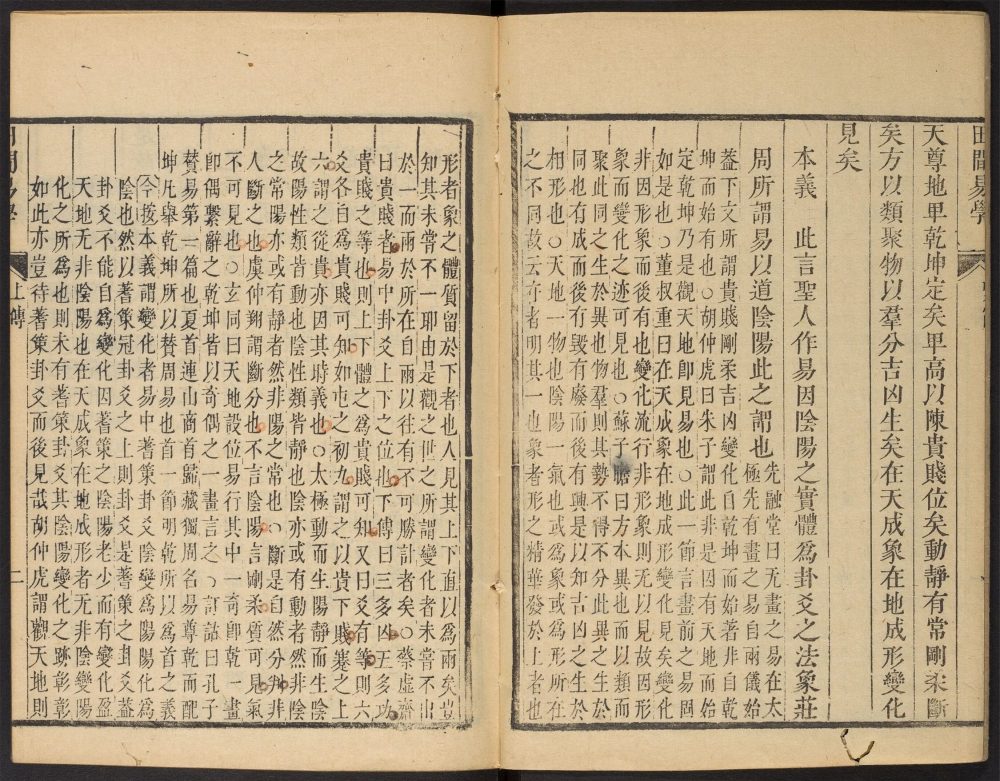 田間易學
天尊地卑乾坤定矣卑高以陳貴賤位矣動靜有常剛柔斷
矣方以類聚物以羣分吉凶生矣在天成象在地成形變化
見矣
本義 此言聖人作易因陰陽之實體爲卦爻之法象莊
周所謂易以道陰陽此之謂也
先融堂曰无畫之易在太
極先有畫之易自兩儀始
蓋下文所謂貴賤剛柔吉凶變化自乾坤而始著非自乾
坤而始有也○胡仲虎曰朱子謂此非是因有天地而始
定乾坤乃是觀天地卽見易也○此一節言畫前之易固
如是也○董叔重曰在天成象在地成形變化見矣變化
非因形象而後有也變化流行非形象則无以見故因形
象而變化之迹可見也○蘇子瞻曰方本異也而以類而
聚此同之生於異也物羣則其勢不得不分此異之生於
同也有成而後有毀有廢而後有興是以知吉凶之生於
相形也天地一物也陰陽一氣也或爲象或爲形所在
之不同故云在者明其一也象者形之精華發於上者也
形者象之體質留於下者也人見其上下直以爲兩矣豈
知其未嘗不一耶由是觀之世之所謂變化者未嘗不出
於一而兩於所在自兩以往有不可勝計者矣○蔡虛齋
曰貴賤者易中卦爻上下之位也下傳曰三多凶五多功
貴賤之等也則上下體之爲貴賤可知又曰爻有等則六
爻各自爲貴賤可知如屯之初九謂之以貴下賤蹇之上
六謂之從貴亦因其時義也○太極動而生陽靜而生陰
故陽性類皆動也陰性類皆靜也陰亦或有動者然非陰
之常陽亦或有靜者然非陽之常也○斷是自然分判非
人斷之也虞仲翔謂斷分也不言陰陽言剛柔質可見氣
不可見也○玄同曰天地設位易行其中一奇卽乾一畫
卽偶繫辭之乾坤皆以奇偶之一畫言之○訂詁曰孔子
贊易第一篇也夏首連山商首歸藏獨周名易尊乾而配
坤凡舉乾坤所以贊周易也首一節明乾所以爲首之義
今按本義謂變化者易中蓍策卦爻陰變爲陽陽化爲
陰也然以蓍策冠卦爻之上則卦爻是蓍策之卦爻蓋
卦爻不能自爲變化因蓍策陰陽老少而有變化盈
天地无非陰陽也在天成象在地成形者无非陰變陽
化之所爲也則未有蓍策卦爻其陰陽變化之跡彰彰
如此亦豈待蓍策卦爻而後見哉胡仲虎謂觀天地則
上傳
二